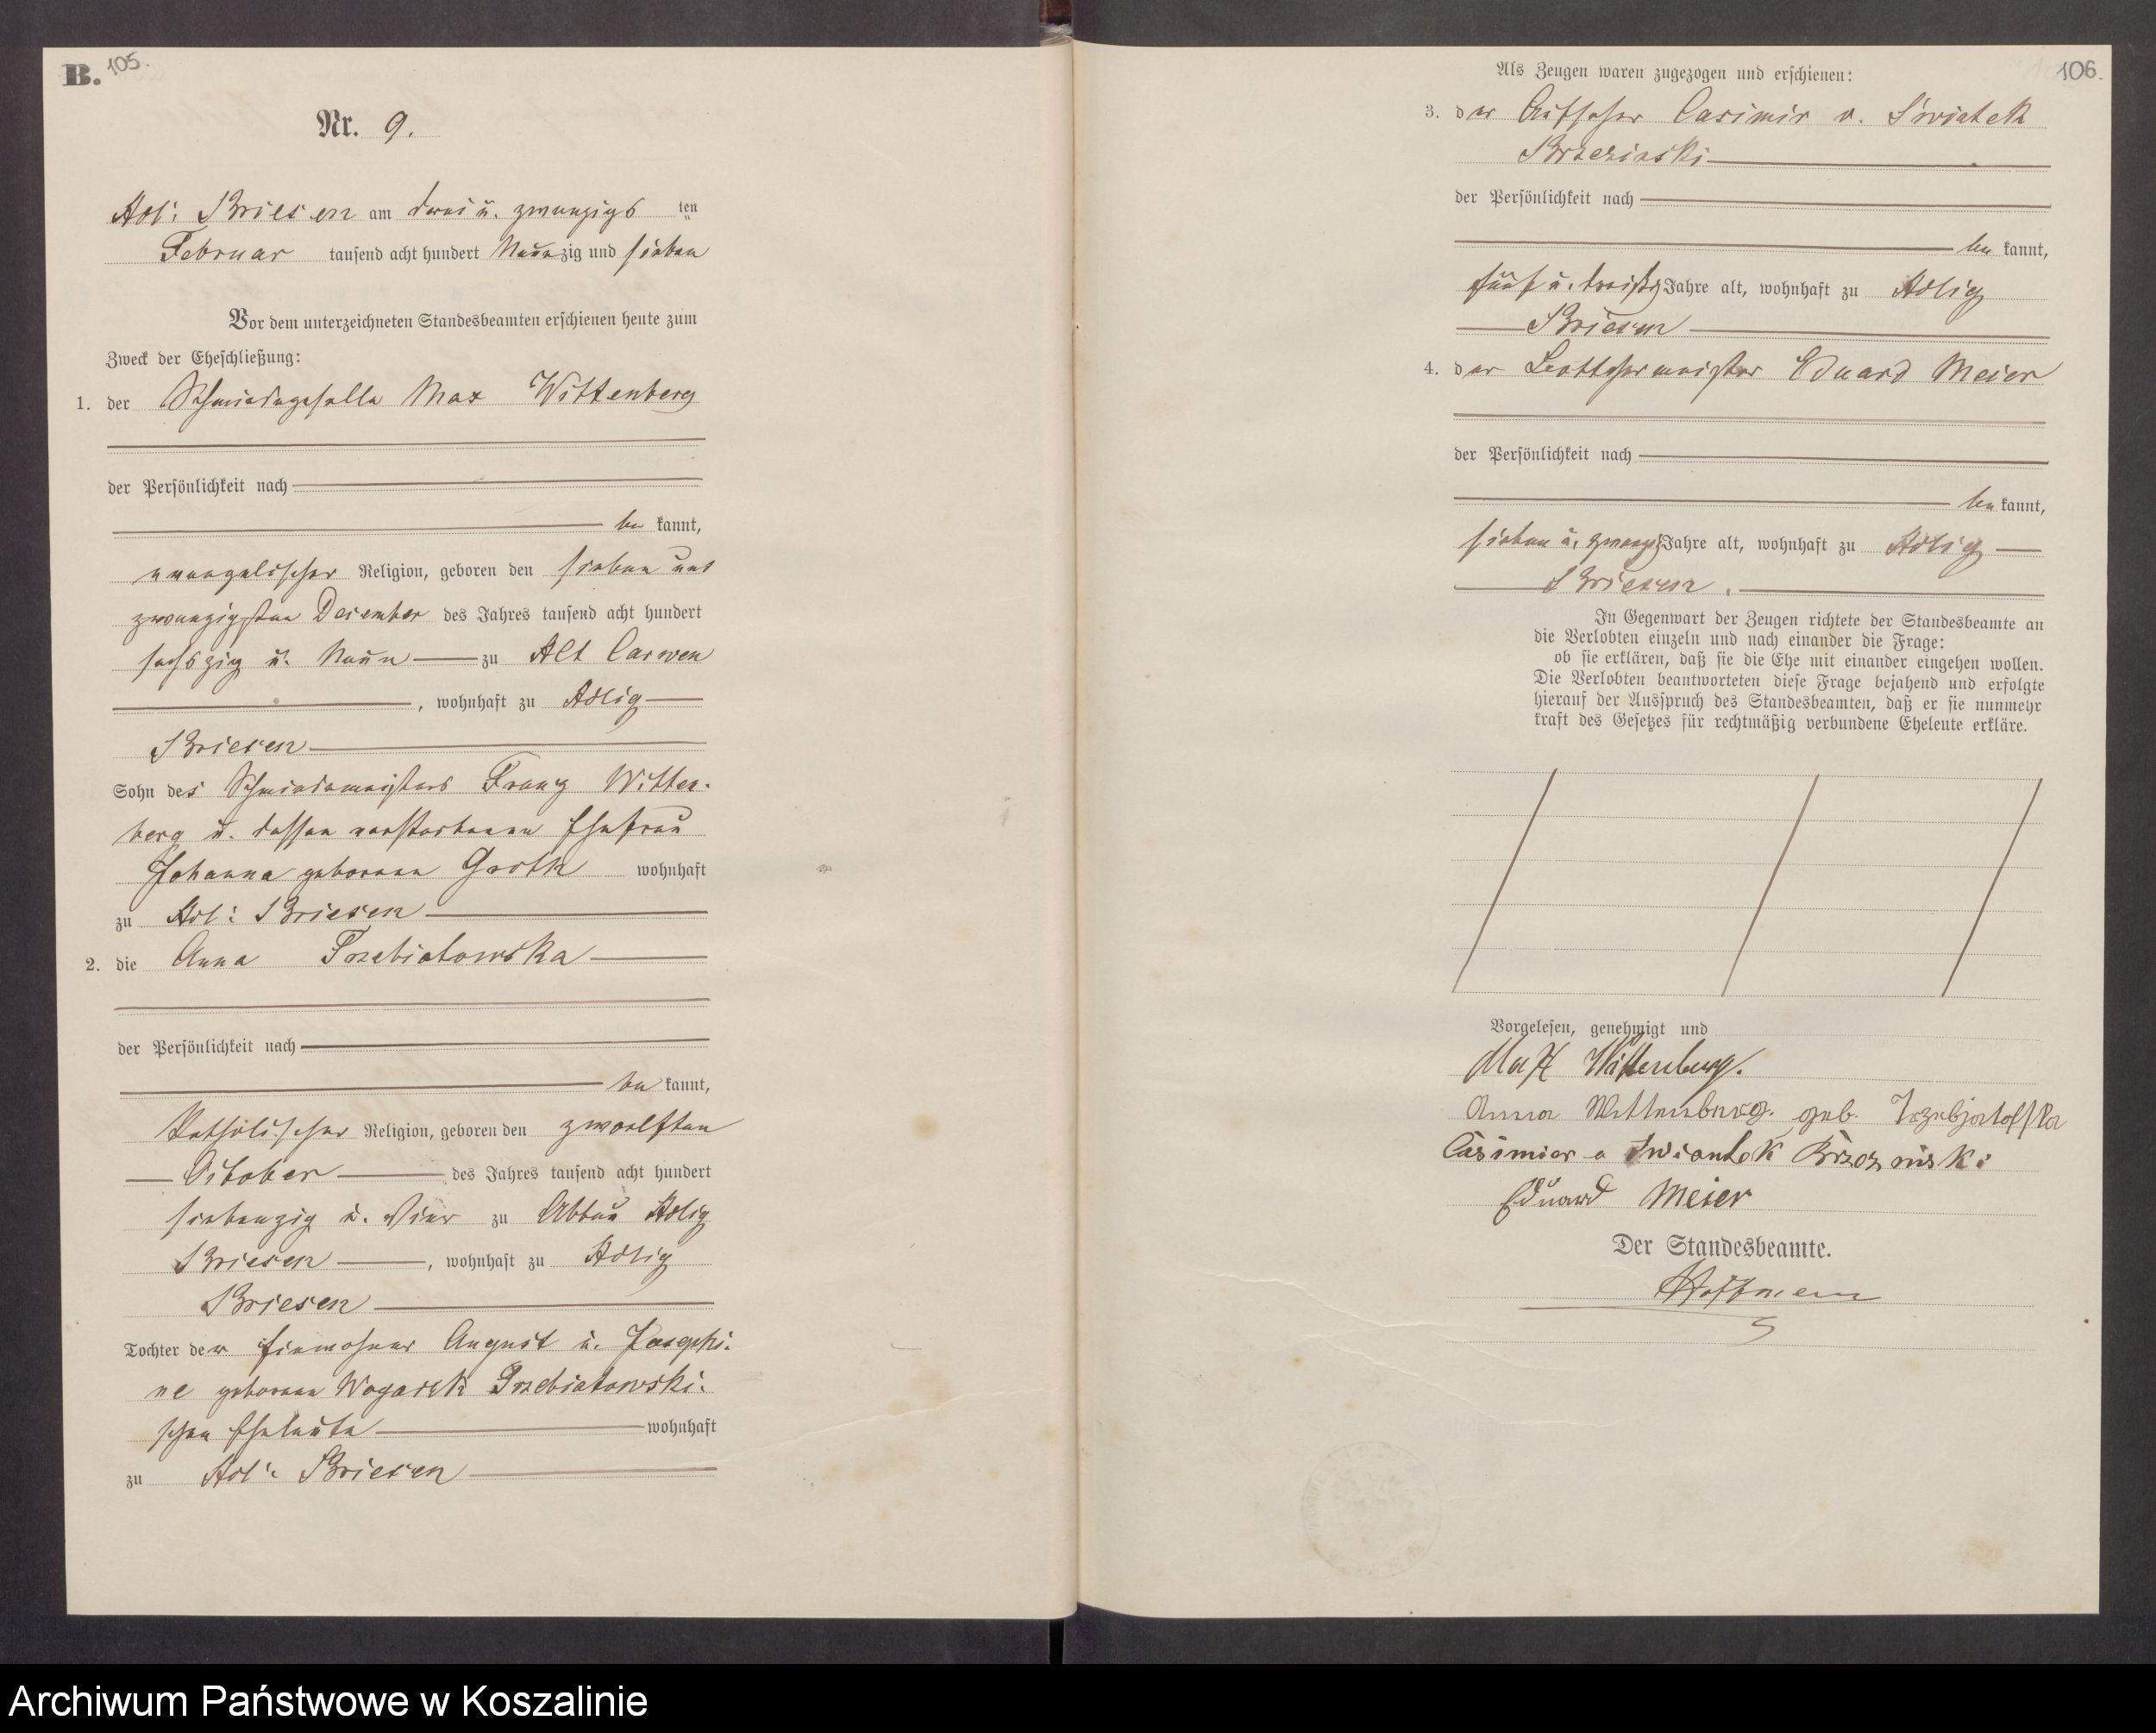 B. 105.
Nr. 9.
Adl: Briesen am drei u. zwanzigs ten
Februar tausend acht hundert Neunzig und sieben
Vor dem unterzeichneten Standesbeamten erschienen heute zum
Zweck der Eheschließung:
1. der Schmiedegeselle Max Wittenberg
der Persönlichkeit nach
be kannt,
evangelischer Religion, geboren den sieben und
zwanzigsten December des Jahres tausend acht hundert
sechszig u. Neun zu Alt Carwen
, wohnhaft zu Adlig
Briesen
Sohn des Schmiedemeisters Franz Witten-
berg u. dessen verstorbenen Ehefrau
Johanna geborenen Groth wohnhaft
zu Adl: Briesen
2. die Anna Trzebiatowska
der Persönlichkeit nach
be kannt,
katholischer Religion, geboren den zwoelften
October des Jahres tausend acht hundert
siebenzig u. Vier zu Abbau Adlig
Briesen , wohnhaft zu Adlig
Briesen
Tochter der Einwohner August u. Josephi-
ne geborenen Trzebiatowski-
schen Eheleute wohnhaft
zu Adl: Briesen
106.
Als Zeugen waren zugezogen und erschienen:
3. der Aufseher Casimir v. Swiatek
Brzezinski
der Persönlichkeit nach
be kannt,
fünf u. dreißig Jahre alt, wohnhaft zu Adlig
Briesen
4. der Eduard Meier
der Persönlichkeit nach
be kannt,
sieben u. zwanzig Jahre alt, wohnhaft zu Adlig
Briesen.
In Gegenwart der Zeugen richtete der Standesbeamte an
die Verlobten einzeln und nach einander die Frage:
ob sie erklären, daß sie die Ehe mit einander eingehen wollen.
Die Verlobten beantworteten diese Frage bejahend und erfolgte
hierauf der Ausspruch des Standesbeamten, daß er sie nunmehr
kraft des Gesetzes für rechtmäßig verbundene Eheleute erkläre.
Vorgelesen, genehmigt und
Max Wittenberg.
Anna Wittenberg. geb.
Casimier
Eduard Meier
Der Standesbeamte.
Hoffmann
Archiwum Państwowe w Koszalinie